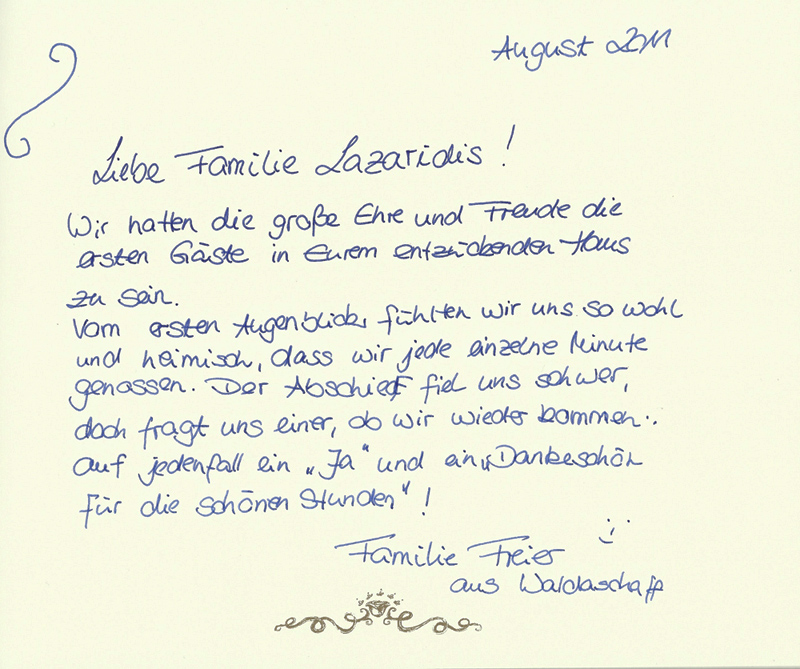 August 2011
Liebe Familie Lazaridis!
Wir hatten die große Ehre und Freude die
ersten Gäste in Eurem entzückenden Haus
zu sein.
Vom ersten Augenblick, fühlten wir uns so wohl
und heimisch, dass wir jede einzelne Minute
genossen. Der Abschied fiel uns schwer,
doch fragt uns einer, ob wir wieder kommen..
auf jedenfall ein „Ja" und ein „Dankeschön
für die schönen Stunden"!
Familie Freier
aus Waldaschaff